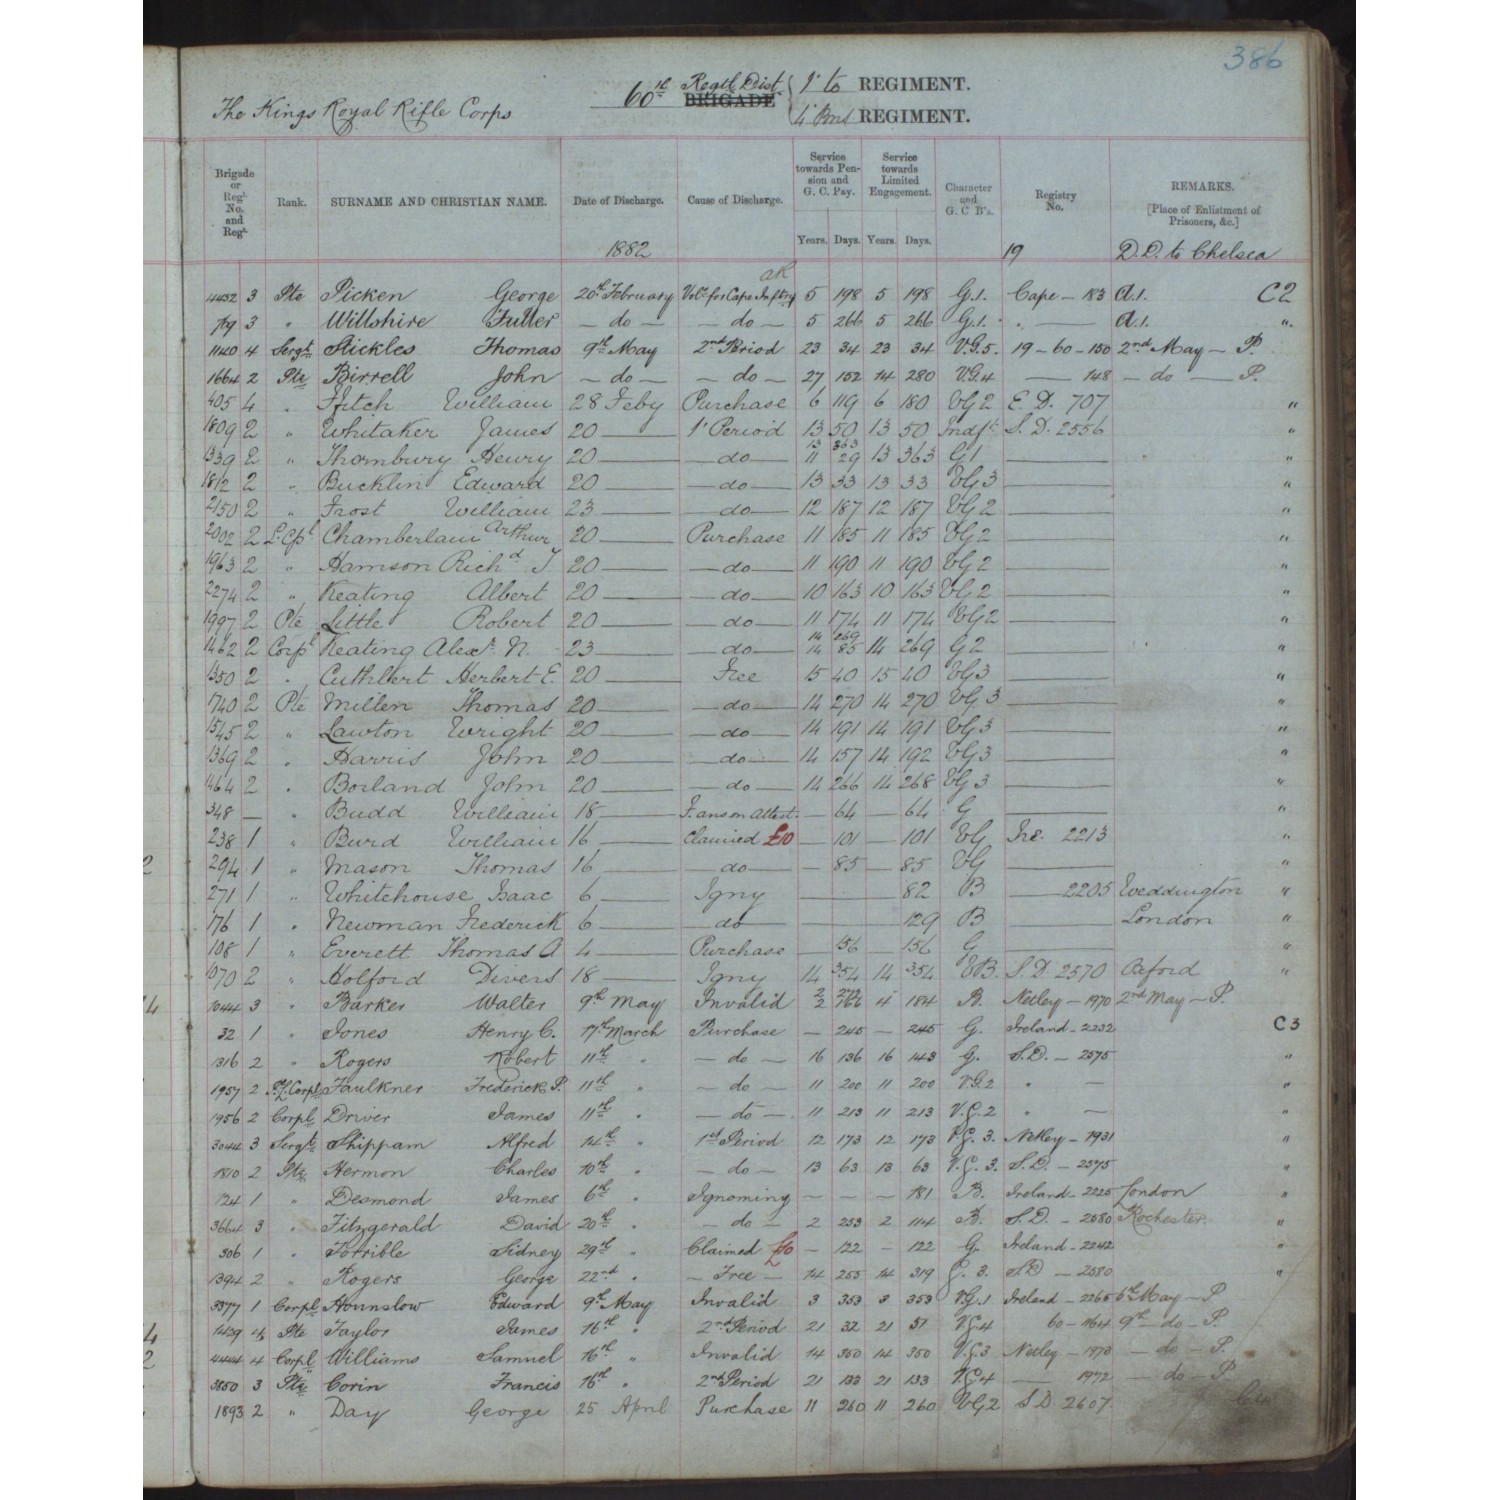 386
The Kings Royal Rifle Corps 60th Regtl Dist BRIGADE { 1st to REGIMENT.
4 Bns REGIMENT.
Brigade or Regl. No. and Regt. Rank. SURNAME AND CHRISTIAN NAME. Date of Discharge. Cause of Discharge. Service towards Pension and G. C. Pay. Service towards Limited Engagement. Character and G. C B's. Registry No. REMARKS. [Place of Enlistment of Prisoners, &c.]
Years. Days. Years. Days.
1882 19 D.D. to Chelsea
4432 3 Pte Picken George 20th February Vol. for Cape Inftry 5 198 5 198 G.1. Cape - 183 A.1. C2
719 3 " Willshire Fuller - do - - do - 5 266 5 266 G.1. " — A.1. "
1140 4 Sergt Stickles Thomas 9th May 2nd Period 23 34 23 34 V.G.5. 19-60-150 2nd May - P.
1664 2 Pte Birrell John - do - - do - 27 152 14 280 V.G.4 — 148 - do - P.
405 4 " Ffitch William 28 Feby Purchase 6 119 6 180 VG2 E.D. 707 "
1809 2 " Whitaker James 20 — 1st Period 13 50 13 50 Indft S.D. 2556 "
1339 2 " Thornbury Henry 20 — do — 13 363 11 29 13 363 G1 — "
1812 2 " Bucklin Edward 20 — do — 13 33 13 33 VG3 — "
2150 2 " Frost William 23 — do — 12 187 12 187 VG2 — "
2002 2 L.Cpl Chamberlain Arthur 20 — Purchase 11 185 11 185 VG2 — "
1963 2 " Harrison Richd J 20 — do — 11 190 11 190 VG2 — "
2274 2 " Keating Albert 20 — do — 10 163 10 163 VG2 — "
1997 2 Pte Little Robert 20 — do — 11 174 11 174 VG2 — "
1462 2 Corpl Keating Alexr. N. 23 — do — 14 269 14 85 14 269 G2 — "
1350 2 " Cuthbert Herbert E. 20 — Free 15 40 15 40 VG3 — "
1740 2 Pte Millen Thomas 20 — do — 14 270 14 270 VG3 — "
1545 2 " Lawton Wright 20 — do — 14 191 14 191 VG3 — "
1369 2 " Harris John 20 — do — 14 157 14 192 VG3 — "
1464 2 " Borland John 20 — do — 14 266 14 268 VG3 — "
348 — " Budd William 18 — F. ans on Attest. — 64 — 64 G — "
238 1 " Burd William 16 — Claimed £10 — 101 — 101 VG Ire. 2213 "
294 1 " Mason Thomas 16 — do — — 85 — 85 VG — "
271 1 " Whitehouse Isaac 6 — Igny — 82 B — 2205 Weddington "
176 1 " Newman Frederick 6 — do — 129 B — London "
108 1 " Everett Thomas A 4 — Purchase 156 — 156 G — "
1070 2 " Holford Divers 18 — Igny 14 354 14 354 VB. S.D. 2570 Oxford "
1044 3 " Barker Walter 9th May Invalid 2 2 166 4 184 B. Netley - 1970 2nd May - P.
32 1 " Jones Henry C. 17th March Purchase — 245 — 245 G. Ireland - 2232 C3
1316 2 " Rogers Robert 11th " - do - 16 136 16 143 G. S.D. - 2575 "
1957 2 Faulkner Frederick P. 11th " - do - 11 200 11 200 V.G.2 " — "
1956 2 Corpl Driver James 11th " - do - 11 213 11 213 V.G.2 " — "
3044 3 Sergt Shippam Alfred 14th " 1st Period 12 173 12 173 V.G.3. Netley - 1931 "
1810 2 Pte Hermon Charles 10th " - do - 13 63 13 63 V.G.3. S.D. - 2575 "
124 1 " Desmond James 6th " Ignominy — — — 181 B. Ireland - 2225 London "
3664 3 " Fitzgerald David 20th " - do - 2 253 2 114 B. S.D. - 2580 Rochester "
306 1 " Torrible Sidney 29th " Claimed £10 — 122 — 122 G. Ireland - 2242 "
1394 2 " Rogers George 22nd " - Free - 14 255 14 319 G.3. S.D. - 2580 "
3377 1 Corpl Hounslow Edward 9th May Invalid 3 353 3 353 V.G.1 Ireland - 2265 6th May - P
1429 4 Pte Taylor James 16th " 2nd Period 21 32 21 51 V.G.4 60-1164 9th - do - P.
4444 4 Corpl Williams Samuel 16th " Invalid 14 350 14 350 V.G.3 Netley - 1973 - do - P.
3850 3 Pte Corin Francis 16th " 2nd Period 21 133 21 133 V.G.4 — 1972 - do - P
1893 2 " Day George 25 April Purchase 11 260 11 260 VG2 S.D. 2607